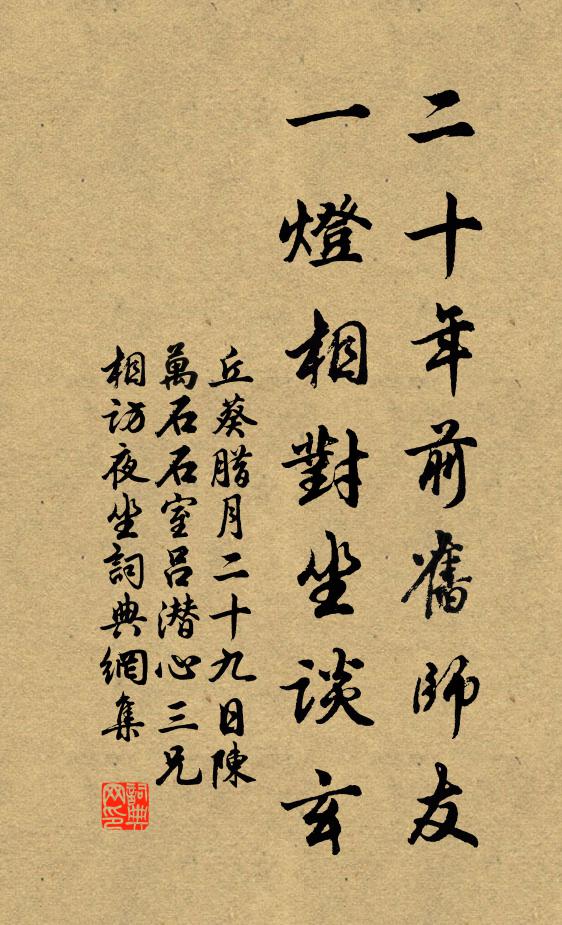 二十年前舊師友
一燈相對坐談玄
丘葵腊月二十九日陳
萬石石室呂潜心三兄
相訪夜坐詞典網集
詞典
网印